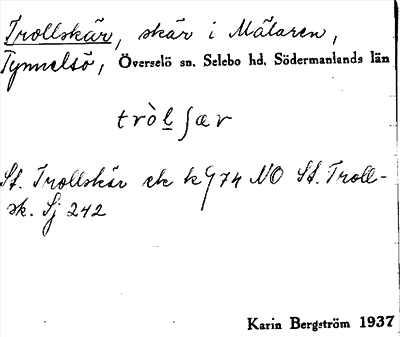 Trollskär, skär i Mälaren,
Tynnelsö, Överselö sn, Selebo hd, Södermanlands län
tròl̲ʃær
St. Trollskär ek k G 74 NO St. Troll-
sk. Sj 242
Karin Bergström 1937